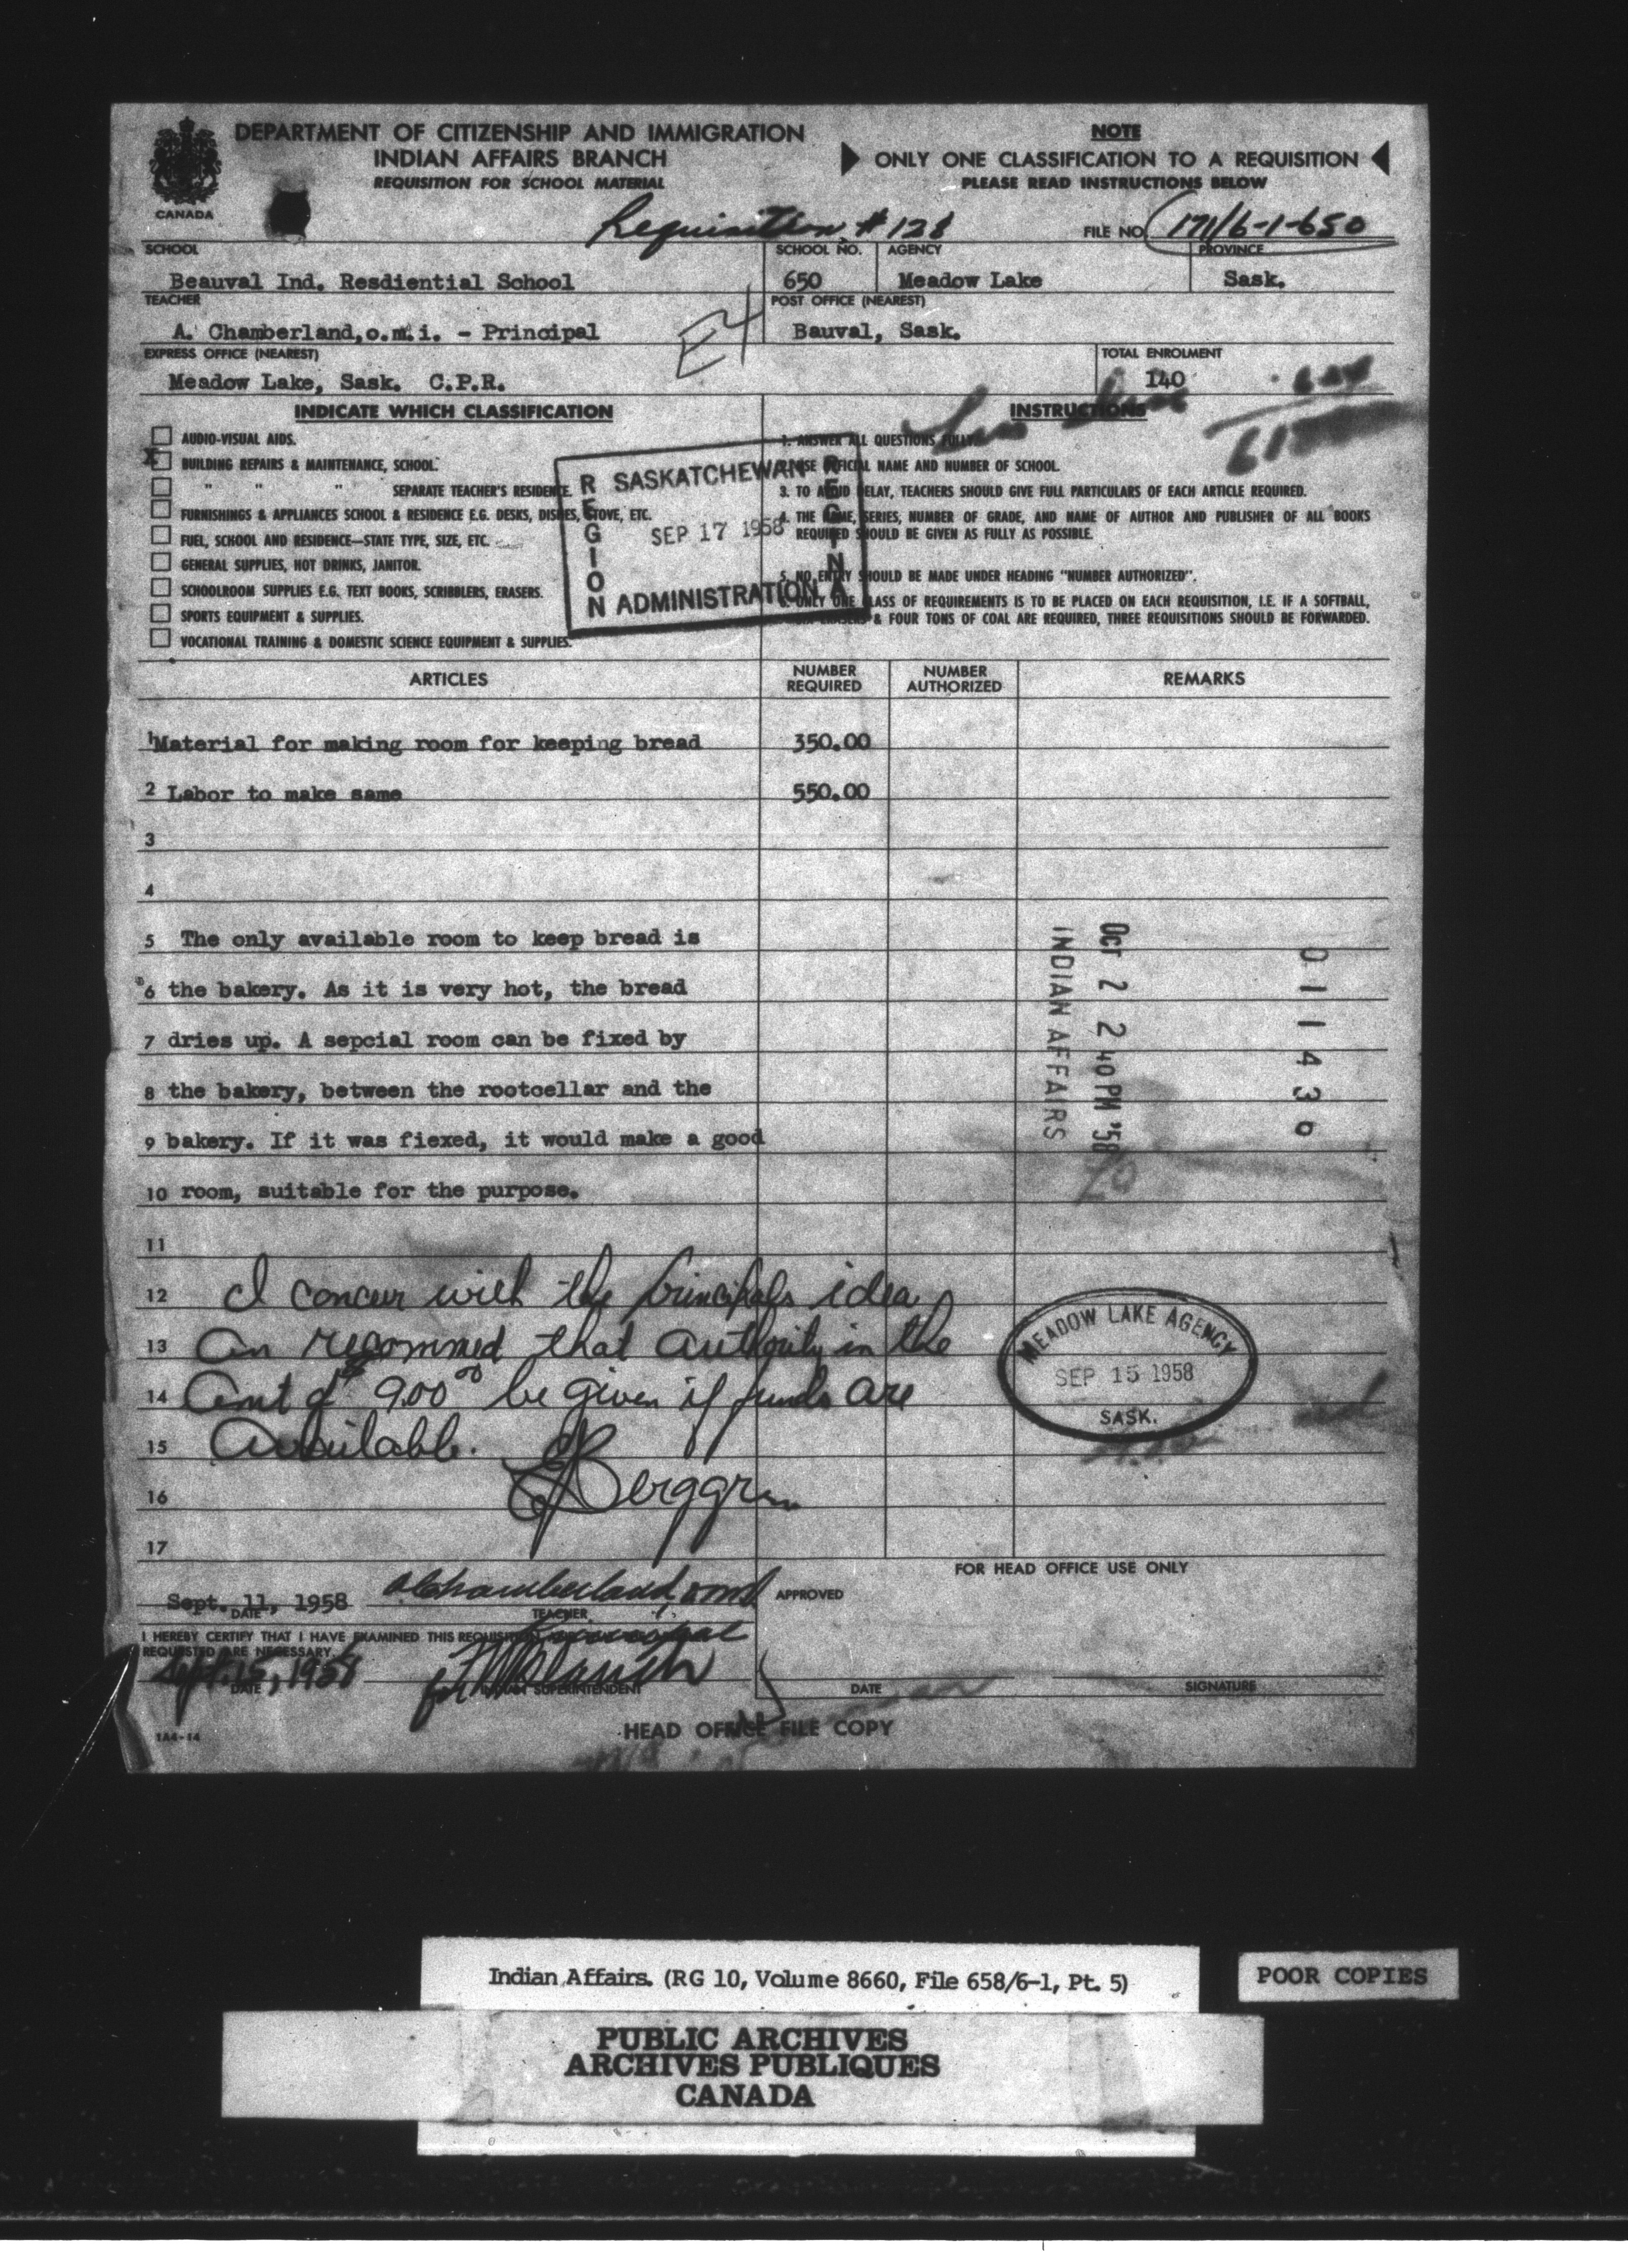 DEPARTMENT OF CITIZENSHIP AND IMMIGRATION
INDIAN AFFAIRS BRANCH
REQUISITION FOR SCHOOL MATERIAL
CANADA
NOTE
ONLY ONE CLASSIFICATION TO A REQUISITION
PLEASE READ INSTRUCTIONS BELOW
Requisition # 128
FILE NO. 171/6-1-650
SCHOOL
Beauval Ind. Resdiential School
SCHOOL NO.
650
AGENCY
Meadow Lake
PROVINCE
Sask.
TEACHER
A. Chamberland,o.m.i. - Principal
E4
POST OFFICE (NEAREST)
Bauval, Sask.
EXPRESS OFFICE (NEAREST)
Meadow Lake, Sask. C.P.R.
TOTAL ENROLMENT
140
INDICATE WHICH CLASSIFICATION
AUDIO-VISUAL AIDS.
X BUILDING REPAIRS & MAINTENANCE, SCHOOL.
" " " SEPARATE TEACHER'S RESIDENCE.
FURNISHINGS & APPLIANCES SCHOOL & RESIDENCE E.G. DESKS, DISHES, STOVE, ETC.
FUEL, SCHOOL AND RESIDENCE—STATE TYPE, SIZE, ETC.
GENERAL SUPPLIES, HOT DRINKS, JANITOR.
SCHOOLROOM SUPPLIES E.G. TEXT BOOKS, SCRIBBLERS, ERASERS.
SPORTS EQUIPMENT & SUPPLIES.
VOCATIONAL TRAINING & DOMESTIC SCIENCE EQUIPMENT & SUPPLIES.
SASKATCHEWAN
REGION
SEP 17 1958
REGINA
ADMINISTRATION
INSTRUCTIONS
1. ANSWER ALL QUESTIONS FULLY.
2. USE OFFICIAL NAME AND NUMBER OF SCHOOL.
3. TO AVOID DELAY, TEACHERS SHOULD GIVE FULL PARTICULARS OF EACH ARTICLE REQUIRED.
4. THE NAME, SERIES, NUMBER OF GRADE, AND NAME OF AUTHOR AND PUBLISHER OF ALL BOOKS
REQUIRED SHOULD BE GIVEN AS FULLY AS POSSIBLE.
5. NO ENTRY SHOULD BE MADE UNDER HEADING "NUMBER AUTHORIZED".
6. ONLY ONE CLASS OF REQUIREMENTS IS TO BE PLACED ON EACH REQUISITION, I.E. IF A SOFTBALL,
& FOUR TONS OF COAL ARE REQUIRED, THREE REQUISITIONS SHOULD BE FORWARDED.
ARTICLES
NUMBER REQUIRED
NUMBER AUTHORIZED
REMARKS
1 Material for making room for keeping bread 350.00
2 Labor to make same 550.00
3
4
5 The only available room to keep bread is
6 the bakery. As it is very hot, the bread
7 dries up. A sepcial room can be fixed by
8 the bakery, between the rootcellar and the
9 bakery. If it was fiexed, it would make a good
10 room, suitable for the purpose.
11
INDIAN AFFAIRS
OCT 2 2 40 PM '58
011436
12 I concur with the principals idea
13 an recommed that authority in the
14 amt of 900.00 be given if funds are
15 available.
16 Berggren
17
MEADOW LAKE AGENCY
SEP 15 1958
SASK.
Sept. 11, 1958
DATE
A Chamberland, omi
TEACHER
Principal
I HEREBY CERTIFY THAT I HAVE EXAMINED THIS REQUISITION
REQUESTED ARE NECESSARY.
Sept. 15, 1958
DATE
for
INDIAN SUPERINTENDENT
FOR HEAD OFFICE USE ONLY
APPROVED
DATE
SIGNATURE
1A4-14
HEAD OFFICE FILE COPY
Indian Affairs. (RG 10, Volume 8660, File 658/6-1, Pt. 5)
POOR COPIES
PUBLIC ARCHIVES
ARCHIVES PUBLIQUES
CANADA